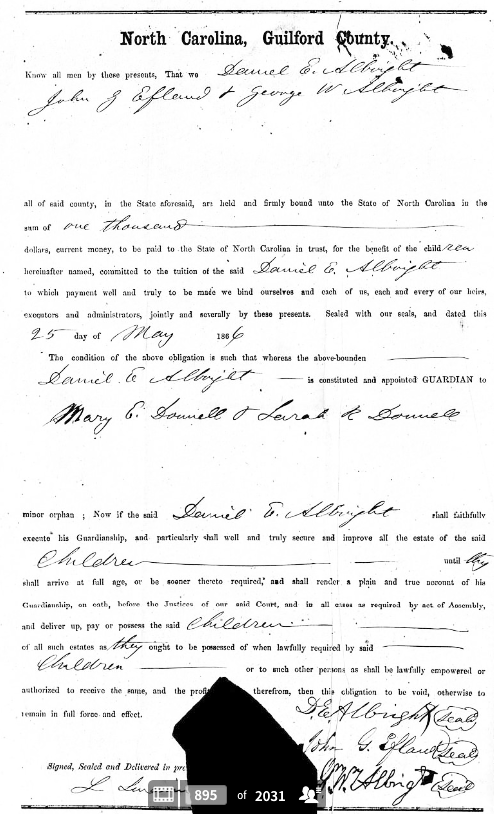 North Carolina, Guilford County.
Know all men by these presents, That we Daniel E. Albright
John G Efland & George W Albright
all of said county, in the State aforesaid, are held and firmly bound unto the State of North Carolina in the
sum of one thousand
dollars, current money, to be paid to the State of North Carolina in trust, for the benefit of the children
hereinafter named, committed to the tuition of the said Daniel E. Albright
to which payment well and truly to be made we bind ourselves and each of us, each and every of our heirs,
executors and administrators, jointly and severally by these presents. Sealed with our seals, and dated this
25 day of May 1866
The condition of the above obligation is such that whereas the above-bounden
Daniel E Albright is constituted and appointed GUARDIAN to
Mary E. Donnell & Sarah R Donnell
minor orphan ; Now if the said Daniel E. Albright shall faithfully
execute his Guardianship, and particularly shall well and truly secure and improve all the estate of the said
Children until they
shall arrive at full age, or be sooner thereto required, and shall render a plain and true account of his
Guardianship, on oath, before the Justices of our said Court, and in all cases as required by act of Assembly,
and deliver up, pay or possess the said Children
of all such estates as they ought to be possessed of when lawfully required by said
Children or to such other persons as shall be lawfully empowered or
authorized to receive the same, and the profi therefrom, then this obligation to be void, otherwise to
remain in full force and effect.
D. E. Albright Seal
John G. Efland Seal
Signed, Sealed and Delivered in pre
G. W. Albright Seal
895 of 2031